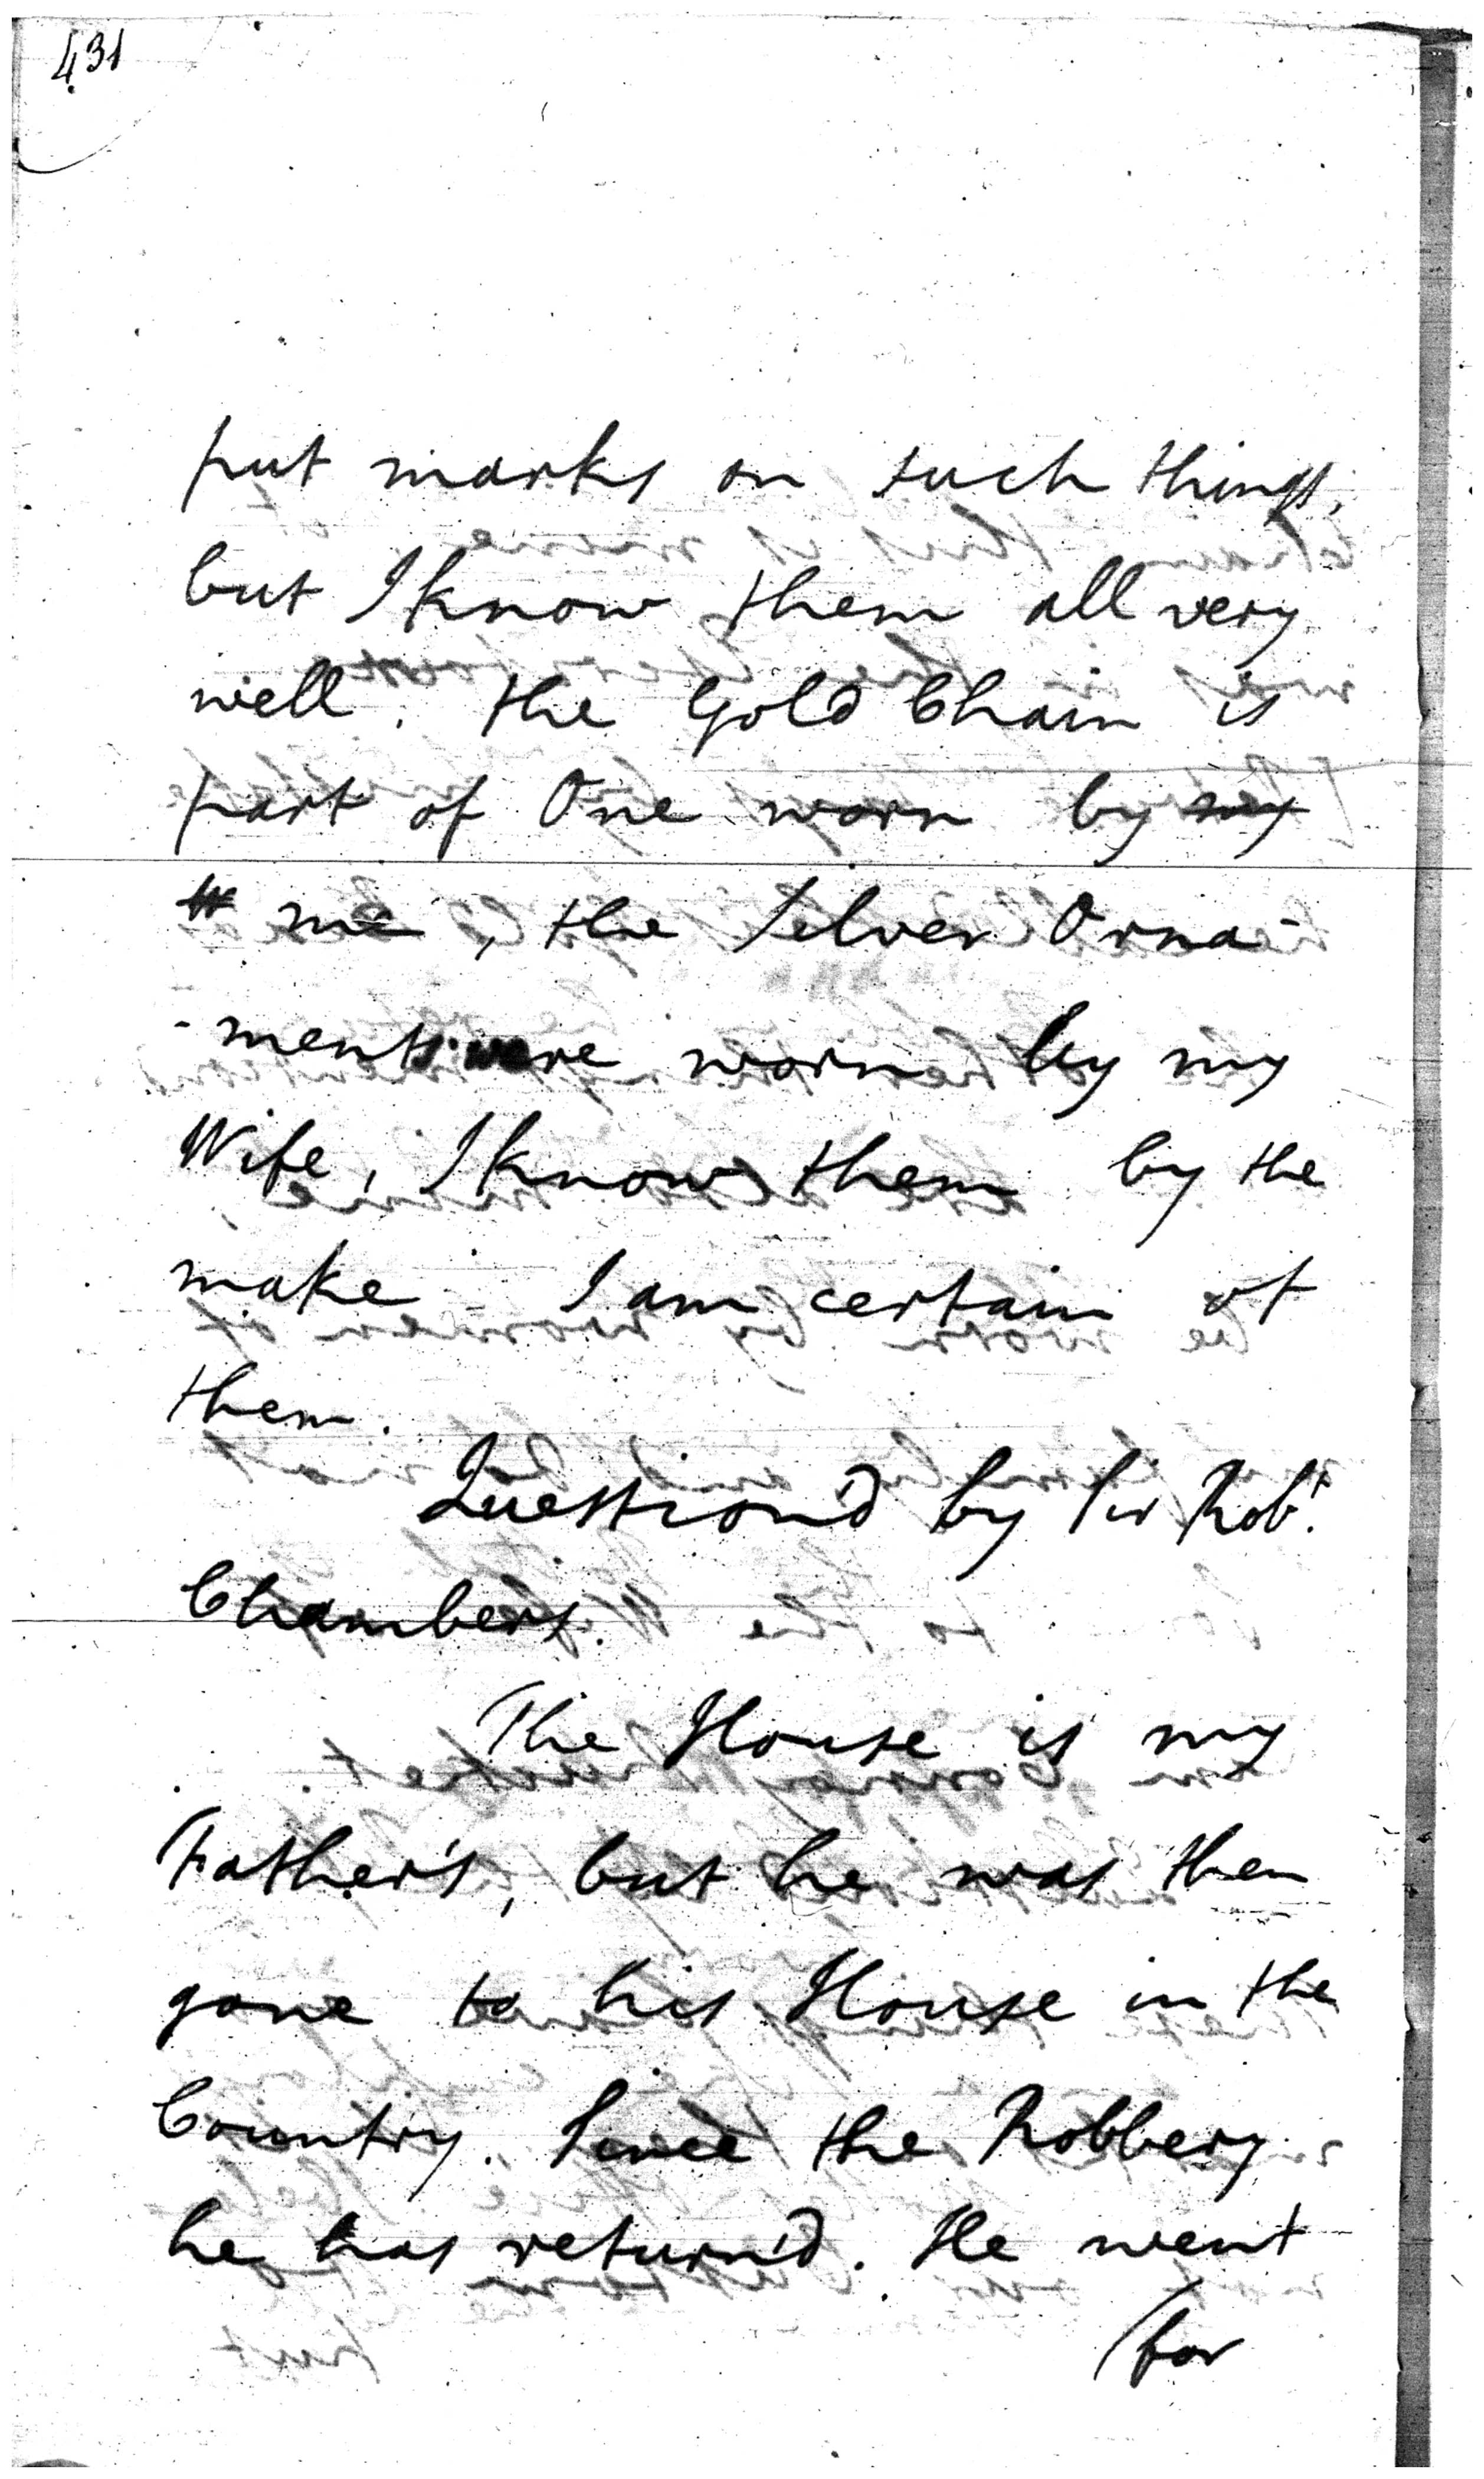 431
put marks on such things,
but I know them all very
well. the Gold Chain is
part of One worn by my
me, the Silver Orna-
-ments were worn by my
Wife, I know them by the
make I am certain of
them.
Question'd by Sir Robt.
Chambers.
The House is my
Father's, but he was then
gone to his House in the
Country. Since the Robbery
he has return'd. He went
for